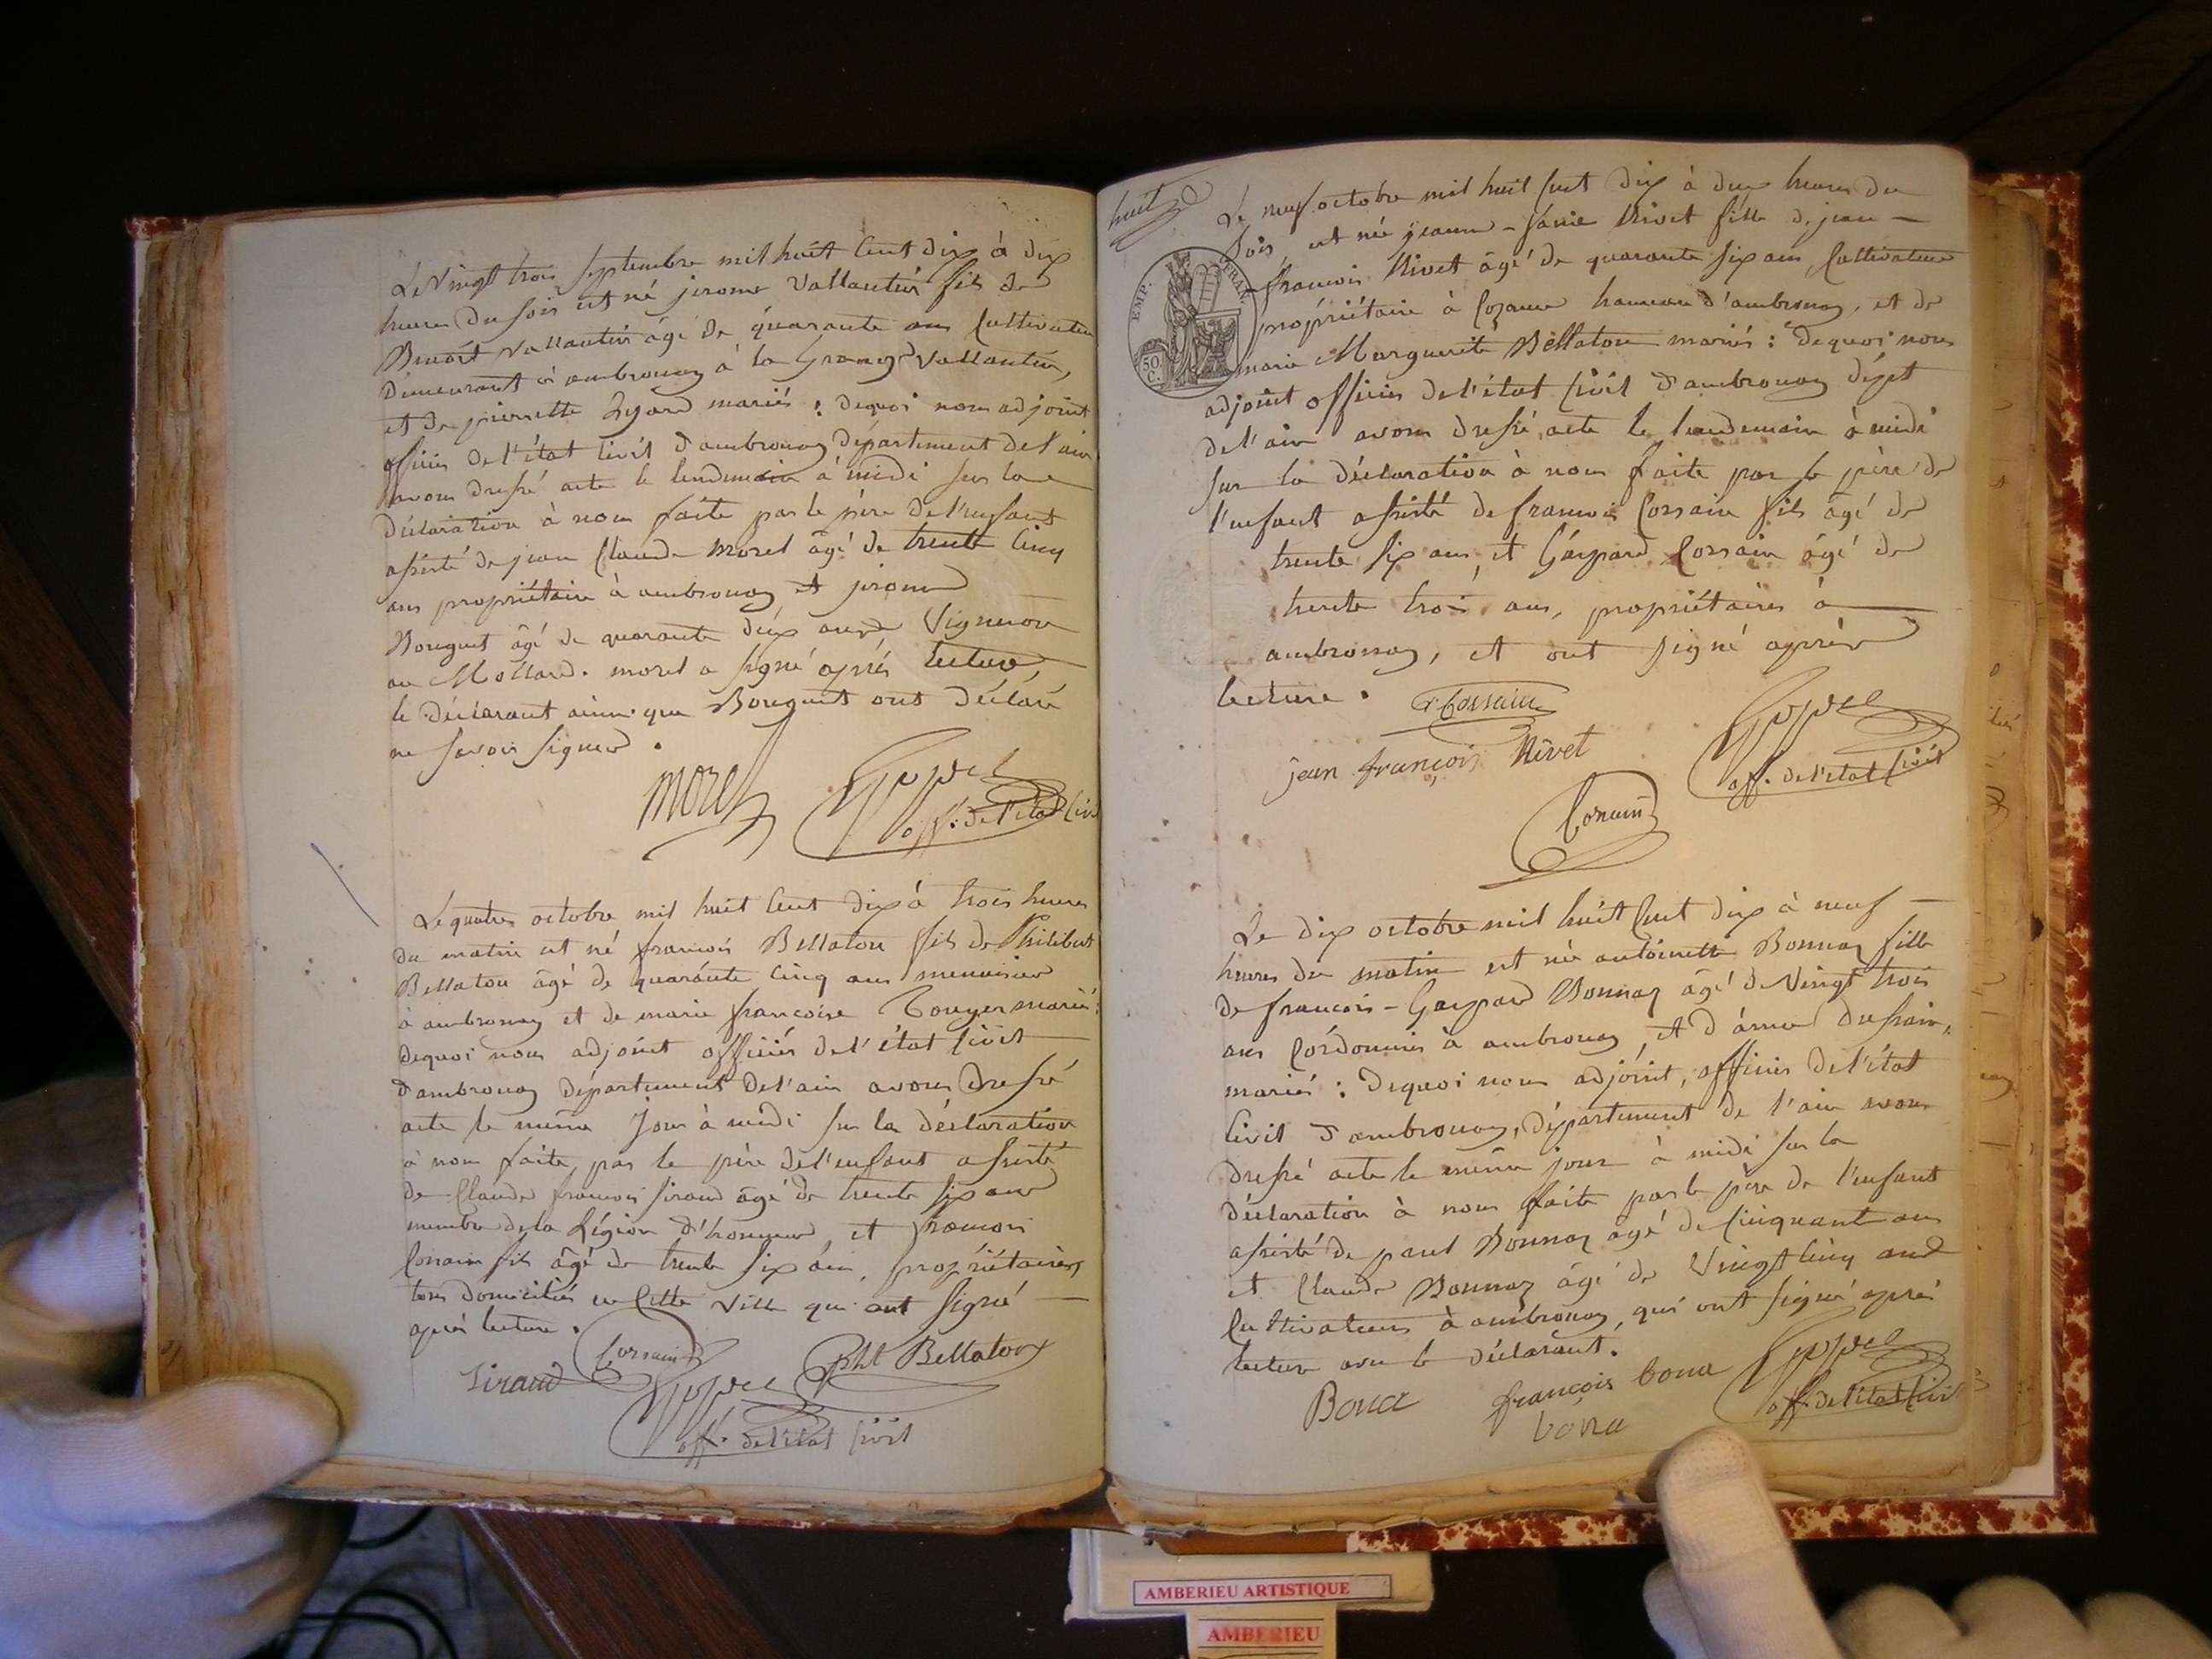 Le vingt trois septembre mil huit cent dix à dix
heures du soir est né jerome Vallantin fils de
Benoit Vallantin âgé de quarante ans Cultivateur
demeurant à ambronay à la Grange Vallantin,
et de pierrette mariés : dequoi nous adjoint
officier de l'état Civil d'ambronay département de l'ain
avons dressé acte le lendemain à midi sur la
déclaration à nous faite par le père de l'enfant
assisté de jean Claude Morel âgé de trente cinq
ans propriétaire à ambronay et jerome
Bouguet âgé de quarante dix ans Vigneron
au Mollard. morel a signé après lecture,
le déclarant ainsi que Bouguet ont déclaré
ne savoir signer.
morel
off. de l'état Civil
Le quatre octobre mil huit Cent dix à trois heures
du matin est né françois Bellaton fils de Philibert
Bellaton âgé de quarante cinq ans menuisier
à ambronay et de marie françoise mariés :
dequoi nous adjoint officier de l'état Civil
d'ambronay département de l'ain avons dressé
acte le même jour à midi sur la déclaration
à nous faite, par le père de l'enfant assisté
de Claude françois Siraud âgé de trente six ans
membre de la Légion d'honneur, et françois
Corrain fils âgé de trente six ans, propriétaires,
tous domiciliés en Cette Ville qui ont signé
après lecture.
Siraud Corrain Pht Bellaton
off. de l'état Civil
huit
Le neuf octobre mil huit Cent dix à dix heures du
soir, est née jeanne - Nivet fille de jean -
EMP. FRAN.
françois Nivet âgé de quarante six ans, Cultivateur
propriétaire à Cozance hameau d'ambronay, et de
50 C.
marie Marguerite Bellaton mariés : dequoi nous
adjoint officier de l'état Civil d'ambronay dépt
de l'ain avons dressé acte le lendemain à midi
sur la déclaration à nous faite par le père de
l'enfant assisté de françois Corrain fils âgé de
trente six ans, et Gaspard Corrain âgé de
trente trois ans, propriétaires à
ambronay, et ont signé après
lecture.
Corrain
jean françois Nivet
off. de l'état Civil
Corrain
Le dix octobre mil huit Cent dix à neuf
heures du matin est née antoinette Bonnaz fille
de françois - Gaspard Bonnaz âgé de vingt trois
ans Cordonnier à ambronay, et d'
mariés : dequoi nous adjoint, officier de l'état
Civil d'ambronay, département de l'ain avons
dressé acte le même jour à midi sur la
déclaration à nous faite par le père de l'enfant
assisté de paul Bonnaz âgé de Cinquante ans
et Claude Bonnaz âgé de Vingt Cinq ans
Cultivateurs à ambronay, qui ont signé après
lecture avec le déclarant.
Bona françois bona
bona
off. de l'état Civil
AMBERIEU ARTISTIQUE
AMBERIEU